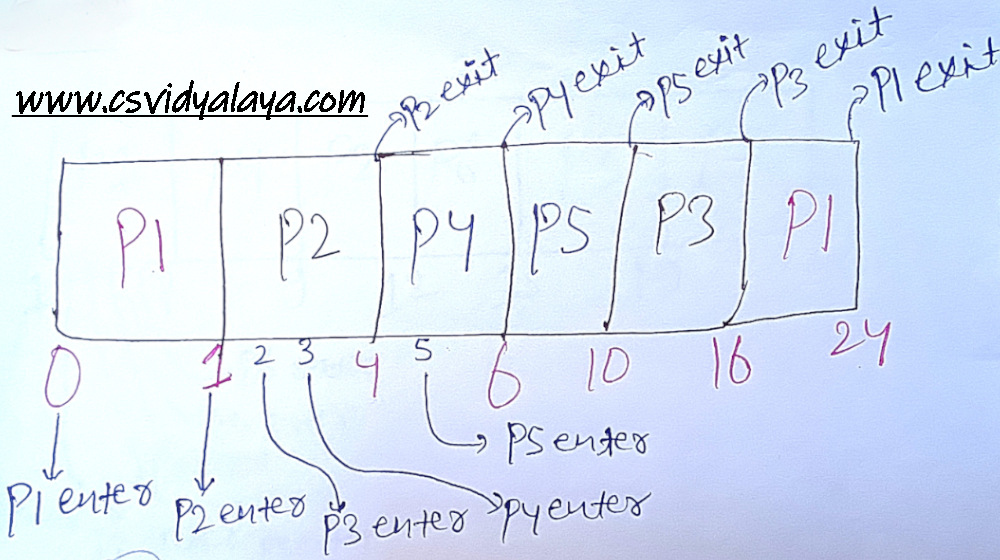 www.csvidyalaya.com
P2 exit P4 exit P5 exit P3 exit P1 exit
P1 P2 P4 P5 P3 P1
0 1 2 3 4 5 6 10 16 24
P5 enter
P1 enter P2 enter P3 enter P4 enter